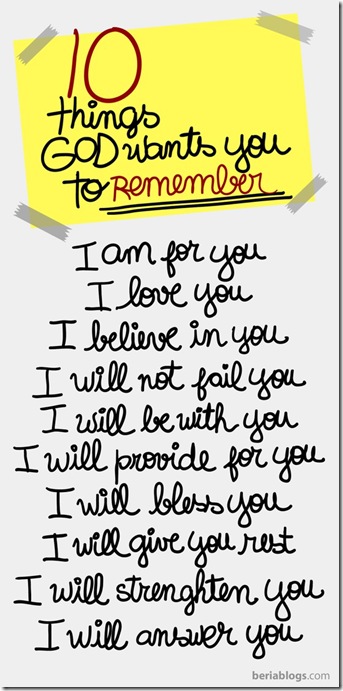 10
things
GOD wants you
to Remember
I am for you
I love you
I believe in you
I will not fail you
I will be with you
I will provide for you
I will bless you
I will give you rest
I will strenghten you
I will answer you
beriablogs.com